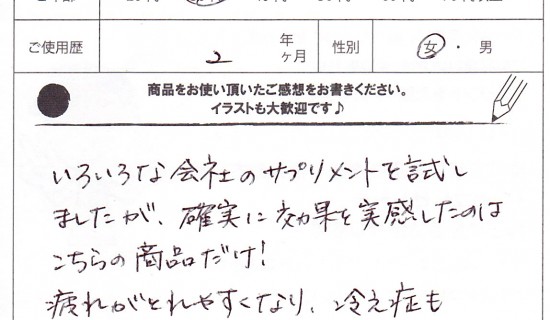 ご使用歴 2 年 ヶ月 性別 女 ・ 男
商品をお使い頂いたご感想をお書きください。
イラストも大歓迎です♪
いろいろな会社のサプリメントを試し
ましたが、確実に効果を実感したのは
こちらの商品だけ!
疲れがとれやすくなり、冷え症も